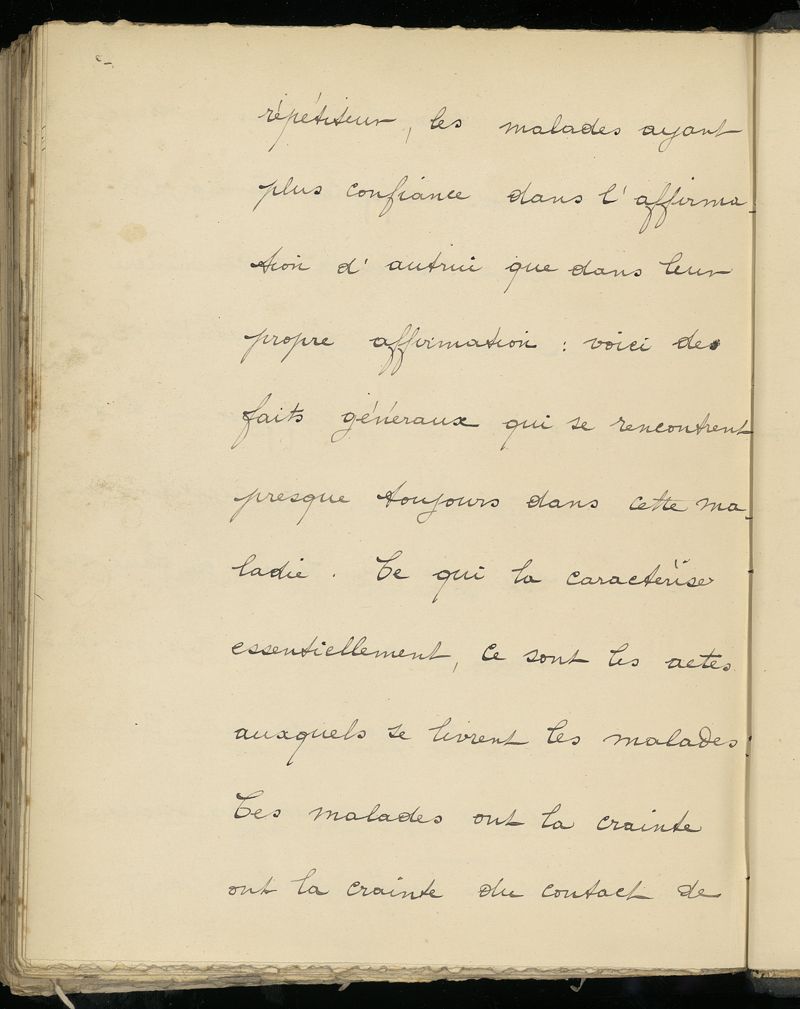 répétiteur, les malades ayant
plus confiance dans l'affirma-
tion d'autrui que dans leur
propre affirmation : voici des
faits généraux qui se rencontrent
presque toujours dans cette ma-
ladie. Ce qui la caractérise
essentiellement, ce sont les actes
auxquels se livrent les malades :
Ces malades ont la crainte
ont la crainte du contact de